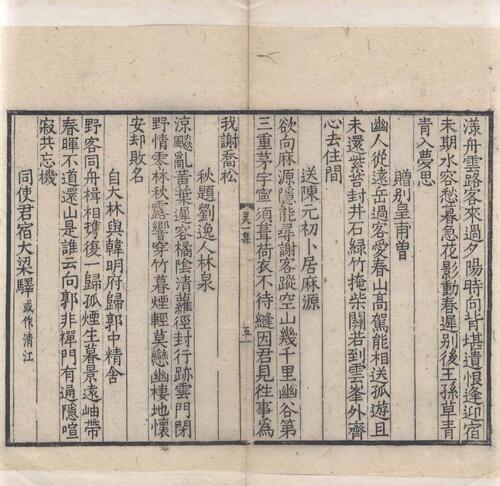 漾舟雲路客來過夕陽時向背堪遺恨逢迎宿
未期水容愁暮急花影動春遲别後王孫草青
青入夢思
贈别皇甫曽
幽人從遠岳過客愛春山髙駕能相送孤遊且
未還紫苔封井石緑竹掩柴關若到雲峯外齊
心去住間
送陳元初卜居麻源
欲向麻源隱能尋謝客蹤空山幾千里幽谷第
三重茅宇寧須葺荷衣不待縫因君見往事為
灵一集 五
我謝喬松
秋題劉逸人林泉
涼飇亂黄葉遲容橘陰清蘿徑封行跡雲門閉
野情零林秋露響穿竹暮煙輕莫戀幽棲地懷
安却敗名
自大林與韓明府歸郭中精舍
野客同舟楫相攜復一歸孤煙生暮景遠岫帶
春暉不道還山是誰云向郭非禪門有通隱喧
寂共忘機
同使君宿大梁驛 或作清江